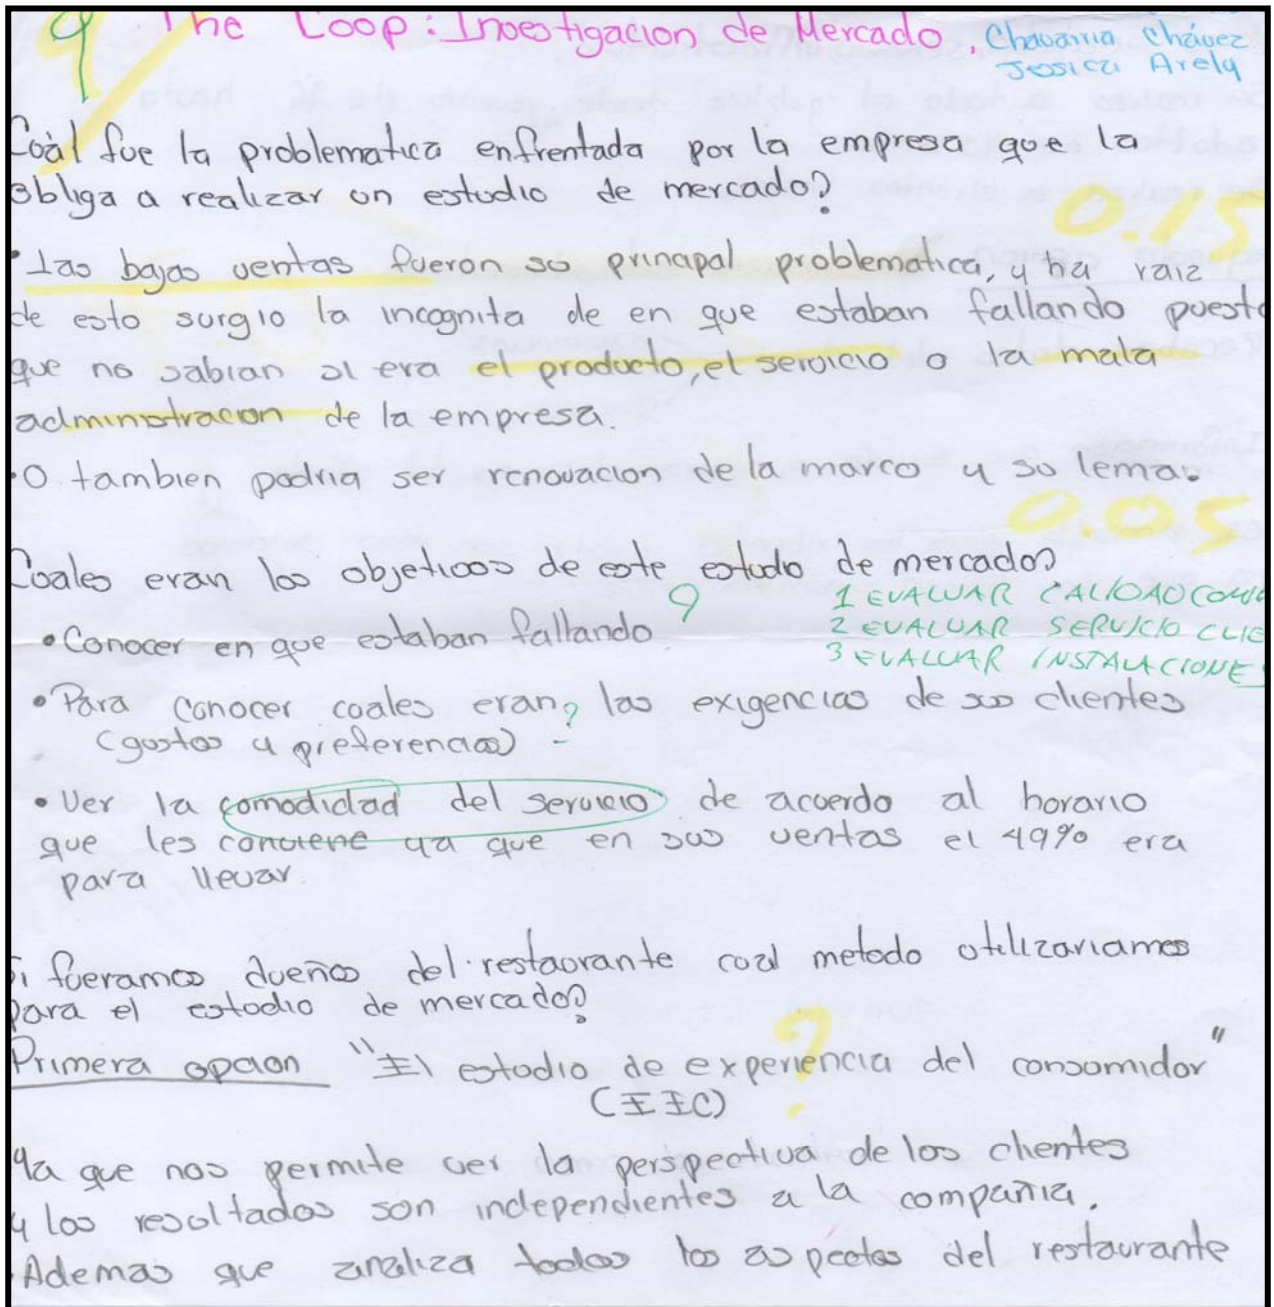 9 The Coop: Investigacion de Mercado. Chavarria Chávez
Jesica Arely
Coàl fue la problematica enfrentada por la empresa que la
obliga a realizar un estudio de mercado?
0.15
• Las bajas ventas fueron su principal problematica, y ha raiz
de esto surgio la incognita de en que estaban fallando puesto
que no sabian si era el producto, el servicio o la mala
administracion de la empresa.
• O tambien podria ser renovacion de la marco y su lema.
0.05
Cuales eran los objetivos de este estudio de mercado?
? 1 EVALUAR CALIDAD COMI
• Conocer en que estaban fallando 2 EVALUAR SERVICIO CLIE
3 EVALUAR INSTALACIONE
• Para conocer cuales eran ? las exigencias de sus clientes
(gustos y preferencias)
• Ver la comodidad del servicio de acuerdo al horario
que les conviene ya que en sus ventas el 49% era
para llevar
Si fueramos dueños del restaurante cual metodo utilizariamos
para el estudio de mercado?
?
Primera opcion "El estudio de experiencia del consumidor"
(EEC)
Ya que nos permite ver la perspectiva de los clientes
y los resultados son independientes a la compañia.
Ademas que analiza todos los aspectos del restaurante